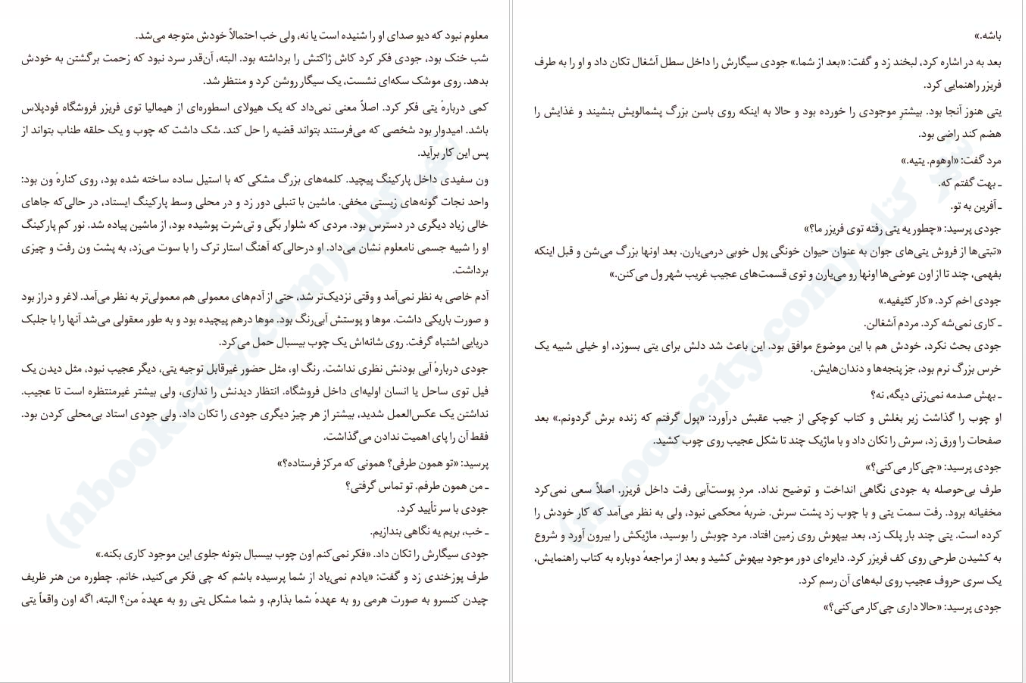 معلوم نبود که دیو صدای او را شنیده است یا نه، ولی خب احتمالاً خودش متوجه می‌شد.
شب خنک بود، جودی فکر کرد کاش ژاکتش را برداشته بود. البته، آن‌قدر سرد نبود که زحمت برگشتن به خودش
بدهد. روی موشک سکه‌ای نشست، یک سیگار روشن کرد و منتظر شد.
کمی دربارهٔ یتی فکر کرد. اصلاً معنی نمی‌داد که یک هیولای اسطوره‌ای از هیمالیا توی فریزر فروشگاه فودپلاس
باشد. امیدوار بود شخصی که می‌فرستند بتواند قضیه را حل کند. شک داشت که چوب و یک حلقه طناب بتواند از
پس این کار برآید.
ون سفیدی داخل پارکینگ پیچید. کلمه‌های بزرگ مشکی که با استیل ساده ساخته شده بود، روی کنارهٔ ون بود:
واحد نجات گونه‌های زیستی مخفی. ماشین با تنبلی دور زد و در محلی وسط پارکینگ ایستاد، در حالی‌که جاهای
خالی زیاد دیگری در دسترس بود. مردی که شلوار بگی و تی‌شرت پوشیده بود، از ماشین پیاده شد. نور کم پارکینگ
او را شبیه جسمی نامعلوم نشان می‌داد. او درحالی‌که آهنگ استار ترک را با سوت می‌زد، به پشت ون رفت و چیزی
برداشت.
آدم خاصی به نظر نمی‌آمد و وقتی نزدیک‌تر شد، حتی از آدم‌های معمولی هم معمولی‌تر به نظر می‌آمد. لاغر و دراز بود
و صورت باریکی داشت. موها و پوستش آبی‌رنگ بود. موها درهم پیچیده بود و به طور معقولی می‌شد آنها را با جلبک
دریایی اشتباه گرفت. روی شانه‌اش یک چوب بیسبال حمل می‌کرد.
جودی دربارهٔ آبی بودنش نظری نداشت. رنگ او، مثل حضور غیرقابل توجیه یتی، دیگر عجیب نبود، مثل دیدن یک
فیل توی ساحل یا انسان اولیه‌ای داخل فروشگاه. انتظار دیدنش را نداری، ولی بیشتر غیرمنتظره است تا عجیب.
نداشتن یک عکس‌العمل شدید، بیشتر از هر چیز دیگری جودی را تکان داد. ولی جودی استاد بی‌محلی کردن بود.
فقط آن را پای اهمیت ندادن می‌گذاشت.
پرسید: «تو همون طرفی؟ همونی که مرکز فرستاده؟»
ـ من همون طرفم. تو تماس گرفتی؟
جودی با سر تأیید کرد.
ـ خب، بریم یه نگاهی بندازیم.
جودی سیگارش را تکان داد. «فکر نمی‌کنم اون چوب بیسبال بتونه جلوی این موجود کاری بکنه.»
طرف پوزخندی زد و گفت: «یادم نمی‌یاد از شما پرسیده باشم که چی فکر می‌کنید، خانم. چطوره من هنر ظریف
چیدن کنسرو به صورت هرمی رو به عهدهٔ شما بذارم، و شما مشکل یتی رو به عهدهٔ من؟ البته، اگه اون واقعاً یتی
باشه.»
بعد به در اشاره کرد، لبخند زد و گفت: «بعد از شما.» جودی سیگارش را داخل سطل آشغال تکان داد و او را به طرف
فریزر راهنمایی کرد.
یتی هنوز آنجا بود. بیشترِ موجودی را خورده بود و حالا به اینکه روی باسن بزرگ پشمالویش بنشیند و غذایش را
هضم کند راضی بود.
مرد گفت: «اوهوم. یتیه.»
ـ بهت گفتم که.
ـ آفرین به تو.
جودی پرسید: «چطور یه یتی رفته توی فریزر ما؟»
«تبتی‌ها از فروش یتی‌های جوان به عنوان حیوان خونگی پول خوبی درمی‌یارن. بعد اونها بزرگ می‌شن و قبل اینکه
بفهمی، چند تا از اون عوضی‌ها اونها رو می‌یارن و توی قسمت‌های عجیب غریب شهر ول می‌کنن.»
جودی اخم کرد. «کار کثیفیه.»
ـ کاری نمی‌شه کرد. مردم آشغالن.
جودی بحث نکرد، خودش هم با این موضوع موافق بود. این باعث شد دلش برای یتی بسوزد، او خیلی شبیه یک
خرس بزرگ نرم بود، جز پنجه‌ها و دندان‌هایش.
ـ بهش صدمه نمی‌زنی دیگه، نه؟
او چوب را گذاشت زیر بغلش و کتاب کوچکی از جیب عقبش درآورد: «پول گرفتم که زنده برش گردونم.» بعد
صفحات را ورق زد، سرش را تکان داد و با ماژیک چند تا شکل عجیب روی چوب کشید.
جودی پرسید: «چی‌کار می‌کنی؟»
طرف بی‌حوصله به جودی نگاهی انداخت و توضیح نداد. مردِ پوست‌آبی رفت داخل فریزر. اصلاً سعی نمی‌کرد
مخفیانه برود. رفت سمت یتی و با چوب زد پشت سرش. ضربهٔ محکمی نبود، ولی به نظر می‌آمد که کار خودش را
کرده است. یتی چند بار پلک زد، بعد بیهوش روی زمین افتاد. مرد چوبش را بوسید، ماژیکش را بیرون آورد و شروع
به کشیدن طرحی روی کف فریزر کرد. دایره‌ای دور موجود بیهوش کشید و بعد از مراجعهٔ دوباره به کتاب راهنمایش،
یک سری حروف عجیب روی لبه‌های آن رسم کرد.
جودی پرسید: «حالا داری چی‌کار می‌کنی؟»
(nbookcity.com)
(nbookcity.com)